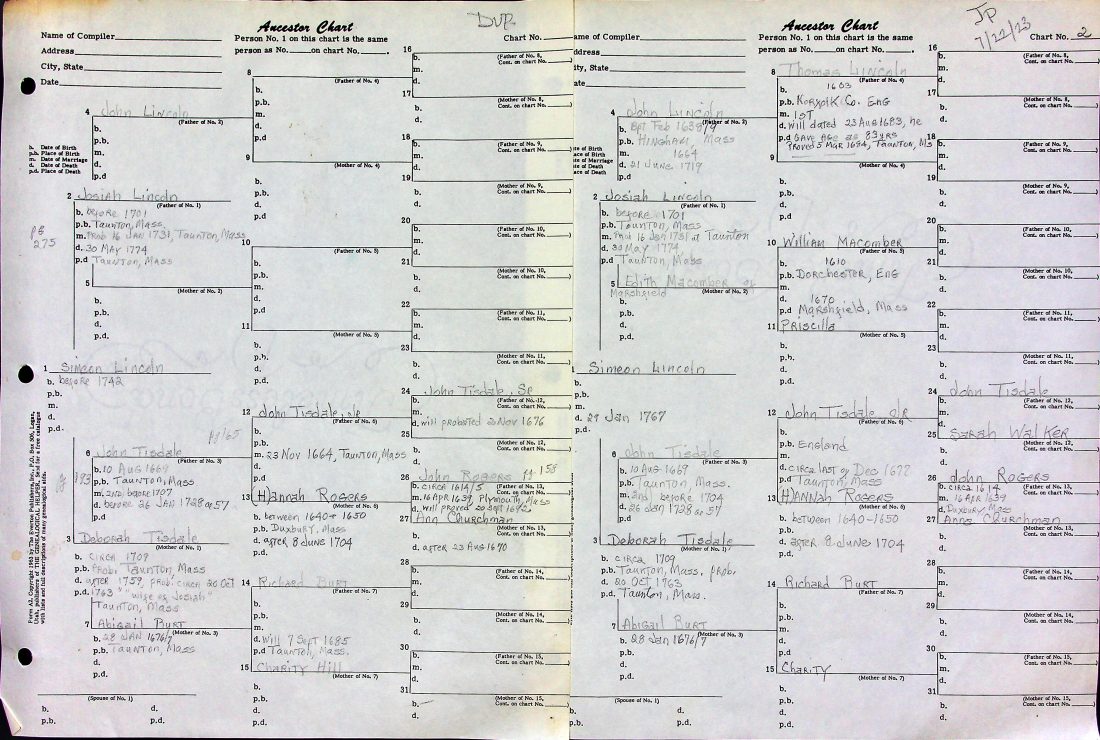 DVR
Ancestor Chart
Name of Compiler
Person No. 1 on this chart is the same
Chart No.
Address
person as No. on chart No.
City, State
Date
16
b.
(Father of No. 8,
Cont. on chart No. )
m.
8
d.
(Father of No. 4)
17
b.
(Mother of No. 8,
Cont. on chart No. )
p.b.
b.
m.
d.
4 John Lincoln
d.
(Father of No. 2)
p.d.
18
b.
(Father of No. 9,
Cont. on chart No. )
b. Date of Birth
p.b. Place of Birth
m. Date of Marriage
d. Date of Death
p.d. Place of Death
b.
p.b.
m.
d.
p.d
9
(Mother of No. 4)
m.
d.
19
(Mother of No. 9,
Cont. on chart No. )
2 Josiah Lincoln
(Father of No. 1)
b.
p.b.
d.
p.d
b.
d.
b. before 1701
p.b. Taunton, Mass.
m. Prob 16 Jan 1731, Taunton, Mass
d. 30 May 1774
p.d Taunton, Mass
pg
275
20
b.
(Father of No. 10,
Cont. on chart No. )
m.
d.
10
(Father of No. 5)
21
(Mother of No. 10,
Cont. on chart No. )
b.
p.b.
m.
d.
p.d
b.
d.
5
(Mother of No. 2)
22
b.
(Father of No. 11,
Cont. on chart No. )
b.
p.b.
d.
p.d.
m.
d.
11
(Mother of No. 5)
23
(Mother of No. 11,
Cont. on chart No. )
b.
p.b.
d.
p.d.
b.
d.
1 Simeon Lincoln
b. before 1742
p.b.
m.
d.
p.d.
24 John Tisdale, Sr
(Father of No. 12,
Cont. on chart No. )
b.
m.
d. will probated 2 Nov 1676
12 John Tisdale, Jr
(Father of No. 6)
25
(Mother of No. 12,
Cont. on chart No. )
b.
p.b.
m. 23 Nov 1664, Taunton, Mass
d.
p.d
b.
d.
pg 65
6 John Tisdale
(Father of No. 3)
193
b. 10 Aug 1669
p.b. Taunton, Mass
m. 2nd before 1707
d. before 26 Jan 1728 at 57
p.d
26 John Rogers pg 158
(Father of No. 13,
Cont. on chart No. )
b. circa 1614/5
m. 16 Apr 1639, Plymouth, Mass
d. will proved 20 Sept 1692
13 Hannah Rogers
(Mother of No. 6)
27 Ann Churchman
(Mother of No. 13,
Cont. on chart No. )
b. between 1640 & 1650
p.b. Duxbury, Mass
d. after 8 June 1704
p.d.
b.
d. after 23 Aug 1670
3 Deborah Tisdale
(Mother of No. 1)
b. circa 1709
p.b. Prob. Taunton, Mass
d. after 1757, prob. circa 20 Oct
p.d. 1763 "wife of Josiah"
Taunton, Mass
28
b.
(Father of No. 14,
Cont. on chart No. )
m.
d.
14 Richard Burt
(Father of No. 7)
29
(Mother of No. 14,
Cont. on chart No. )
b.
p.b.
m.
d. Will 7 Sept 1685
p.d Taunton, Mass.
b.
d.
7 Abigail Burt
(Mother of No. 3)
b. 28 Jan 1676/7
p.b. Taunton, Mass
d.
p.d.
30
b.
(Father of No. 15,
Cont. on chart No. )
m.
d.
15 Charity Hill
(Mother of No. 7)
31
(Mother of No. 15,
Cont. on chart No. )
b.
p.b.
d.
p.d.
b.
d.
(Spouse of No. 1)
b. d.
p.b. p.d.
Form A2, Copyright 1963 by The Everton Publishers, Inc., P.O. Box 368, Logan,
Utah, publishers of THE GENEALOGICAL HELPER. Send for a free catalogue
with lists and full descriptions of many genealogical aids.
JP
7/22/23
Ancestor Chart
ame of Compiler
Person No. 1 on this chart is the same
Chart No. 2
ddress
person as No. on chart No.
ity, State
ate
16
b.
(Father of No. 8,
Cont. on chart No. )
m.
d.
8 Thomas Lincoln
(Father of No. 4)
17
(Mother of No. 8,
Cont. on chart No. )
b. 1603
p.b. Norfolk Co. Eng
m. 1st
d. Will dated 23 Aug 1683, he
p.d gave age as 83 yrs
Proved 5 Mar 1684, Taunton, Ms
b.
d.
4 John Lincoln
(Father of No. 2)
b. Bpt Feb 1638/9
p.b. Hingham, Mass
m. 1664
d. 21 June 1719
p.d
te of Birth
ace of Birth
te of Marriage
te of Death
ace of Death
18
b.
(Father of No. 9,
Cont. on chart No. )
m.
d.
9
(Mother of No. 4)
19
(Mother of No. 9,
Cont. on chart No. )
b.
p.b.
d.
p.d.
b.
d.
2 Josiah Lincoln
(Father of No. 1)
b. before 1701
p.b. Taunton, Mass
m. Prob 16 Jan 1731 at Taunton
d. 30 May 1774
p.d Taunton, Mass
20
b.
(Father of No. 10,
Cont. on chart No. )
m.
d.
10 William Macomber
(Father of No. 5)
21
(Mother of No. 10,
Cont. on chart No. )
b. 1610
p.b. Dorchester, Eng
m.
d. 1670
p.d Marshfield, Mass
b.
d.
5 Edith Macomber of
Marshfield
(Mother of No. 2)
b.
p.b.
d.
p.d.
22
b.
(Father of No. 11,
Cont. on chart No. )
m.
d.
11 Priscilla
(Mother of No. 5)
23
(Mother of No. 11,
Cont. on chart No. )
b.
p.b.
d.
p.d.
b.
d.
1 Simeon Lincoln
b.
p.b.
m.
d. 29 Jan 1767
p.d.
24 John Tisdale
(Father of No. 12,
Cont. on chart No. )
b.
m.
d.
12 John Tisdale Jr
(Father of No. 6)
25 Sarah Walker
(Mother of No. 12,
Cont. on chart No. )
b.
p.b. England
m.
d. circa last of Dec 1677
p.d Taunton, Mass
b.
d.
6 John Tisdale
(Father of No. 3)
b. 10 Aug 1669
p.b. Taunton, Mass.
m. 2nd before 1704
d. 26 Jan 1728 at 57
p.d
26 John Rogers
(Father of No. 13,
Cont. on chart No. )
b. circa 1614
m. 16 Apr 1639
d. Duxbury, Mass
13 Hannah Rogers
(Mother of No. 6)
27 Anna Churchman
(Mother of No. 13,
Cont. on chart No. )
b. between 1640-1650
p.b.
d. after 8 June 1704
p.d.
b.
d.
3 Deborah Tisdale
(Mother of No. 1)
b. circa 1709
p.b. Taunton, Mass, prob.
d. 20 Oct 1763
p.d. Taunton, Mass.
28
b.
(Father of No. 14,
Cont. on chart No. )
m.
d.
14 Richard Burt
(Father of No. 7)
29
(Mother of No. 14,
Cont. on chart No. )
b.
p.b.
m.
d.
p.d
b.
d.
7 Abigail Burt
(Mother of No. 3)
b. 28 Jan 1676/7
p.b.
d.
p.d.
30
b.
(Father of No. 15,
Cont. on chart No. )
m.
d.
15 Charity
(Mother of No. 7)
31
(Mother of No. 15,
Cont. on chart No. )
b.
p.b.
d.
p.d.
b.
d.
(Spouse of No. 1)
b. d.
p.b. p.d.